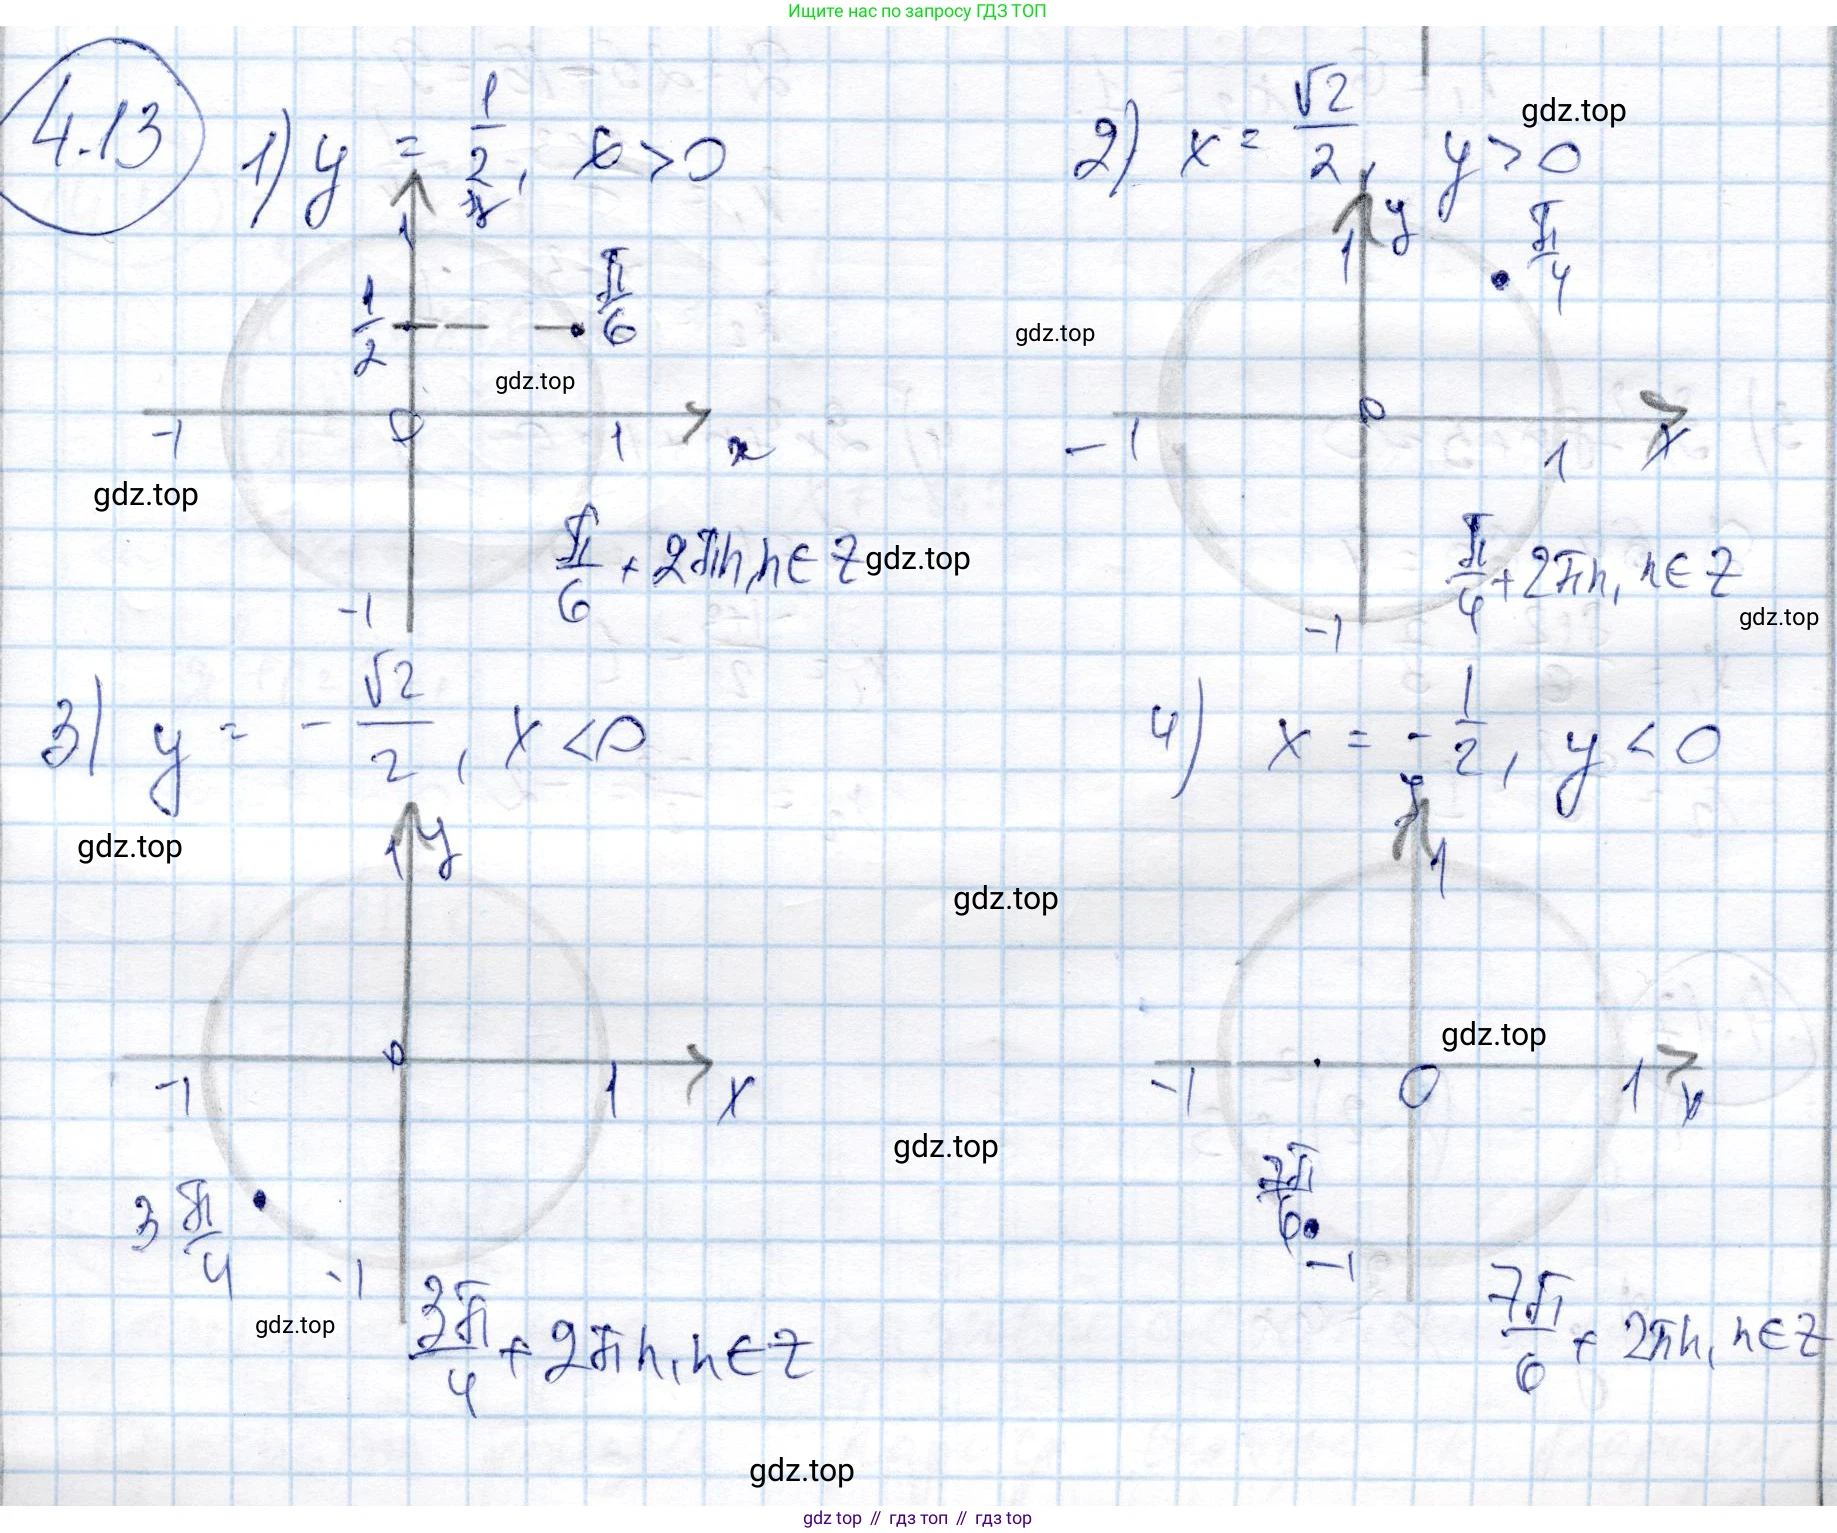 Ищите нас по запросу ГДЗ ТОП
4.13
1) y = 1/2, x > 0
2) x = √2/2, y > 0
gdz.top
y
1
1/2
π/6
gdz.top
-1
0
1
x
gdz.top
-1
π/6 + 2πn, n ∈ Z
gdz.top
y
1
π/4
gdz.top
-1
0
1
x
-1
π/4 + 2πn, n ∈ Z
gdz.top
3) y = -√2/2, x < 0
4) x = -1/2, y < 0
gdz.top
1
y
gdz.top
-1
0
1
x
gdz.top
3π/4
-1
gdz.top
3π/4 + 2πn, n ∈ Z
y
1
gdz.top
-1
0
1
x
7π/6
-1
7π/6 + 2πn, n ∈ Z
gdz.top
gdz топ // гдз топ // гдз top